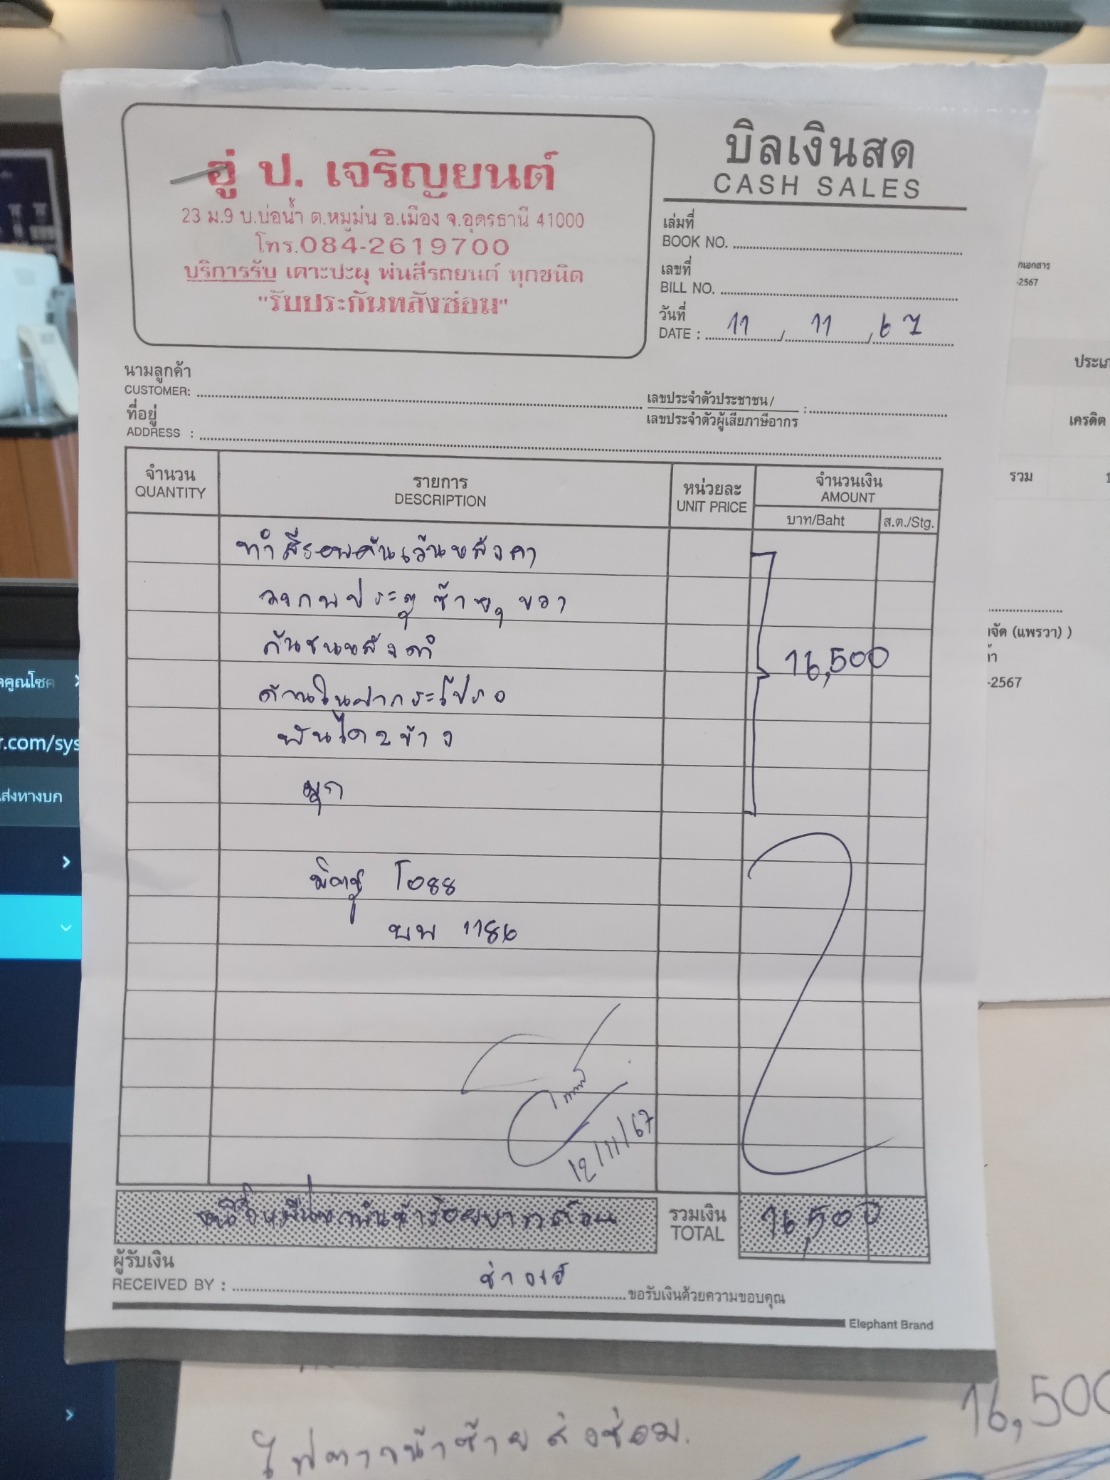 อู่ ป. เจริญยนต์
23 ม.9 บ.บ่อน้ำ ต.หมูม่น อ.เมือง จ.อุดรธานี 41000
โทร.084-2619700
บริการรับ เคาะปะผุ พ่นสีรถยนต์ ทุกชนิด
"รับประกันหลังซ่อม"
บิลเงินสด
CASH SALES
เล่มที่
BOOK NO.
เลขที่
BILL NO.
วันที่
DATE : 11 / 11 / 67
นามลูกค้า
CUSTOMER:
เลขประจำตัวประชาชน /
เลขประจำตัวผู้เสียภาษีอากร :
ที่อยู่
ADDRESS :
จำนวน รายการ หน่วยละ จำนวนเงิน
QUANTITY DESCRIPTION UNIT PRICE AMOUNT
บาท/Baht ส.ต./Stg.
ทำสีรอบคันเว้นหลังคา
ประตู ซ้าย, ขวา
กันชนหลังดำ
16,500
ด้านในฝากระโปรง
บันได 2 ข้าง
มิตซู
บพ 1186
12/11/67
รวมเงิน
TOTAL 16,500
ผู้รับเงิน
RECEIVED BY : ขอรับเงินด้วยความขอบคุณ
Elephant Brand
16,500
ซ้าย ส่งซ่อม.
-2567
ประเภ
เครดิต
รวม
จัด (แพรวา) )
-2567
r.com/sys
ส่งทางบก